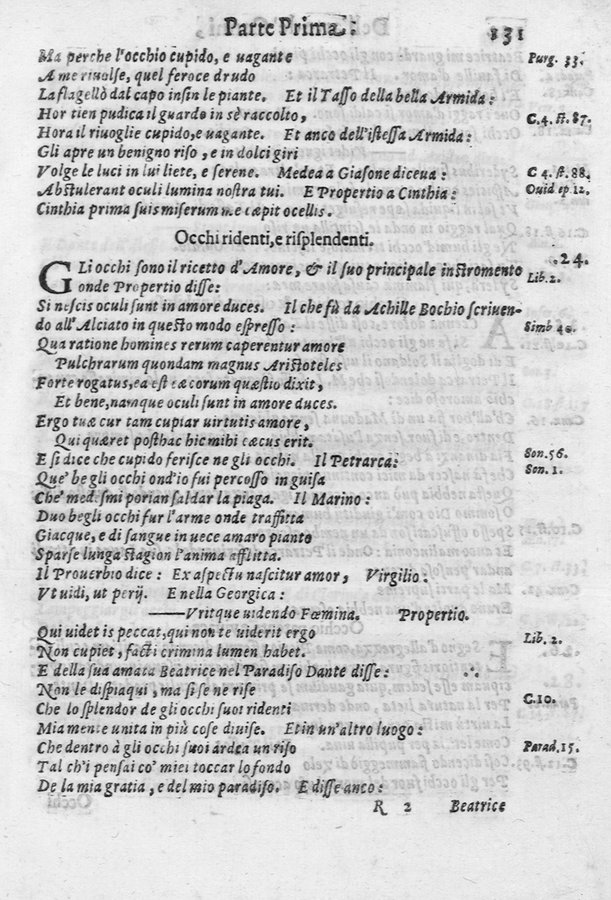 Parte Prima. 131
Ma perche l'occhio cupido, e uagante Purg. 33.
A me riuolse, quel feroce drudo
La flagellò dal capo insin le piante. Et il Tasso della bella Armida:
Hor tien pudica il guardo in sè raccolto, C. 4. st. 87.
Hora il riuoglie cupido, e uagante. Et anco dell'istessa Armida:
Gli apre un benigno riso, e in dolci giri
Volge le luci in lui liete, e serene. Medea a Giasone diceua: C 4. st. 88.
Abstulerant oculi lumina nostra tui. E Propertio a Cinthia: Ouid ep. 12.
Cinthia prima suis miserum me cæpit ocellis.
Occhi ridenti, e risplendenti.
GLi occhi sono il ricetto d'Amore, & il suo principale instromento .24.
onde Propertio disse: Lib. 2.
Si nescis oculi sunt in amore duces. Il che fù da Achille Bochio scriuen-
do all'Alciato in questo modo espresso: Simb 40.
Qua ratione homines rerum caperentur amore
Pulchrarum quondam magnus Aristoteles
Forte rogatus, ea est cæcorum quæstio dixit,
Et bene, namque oculi sunt in amore duces.
Ergo tuæ cur tam cupiar uirtutis amore,
Qui quæret posthac hic mihi cæcus erit.
E si dice che cupido ferisce ne gli occhi. Il Petrarca: Son. 56.
Que' be gli occhi ond'io fui percosso in guisa Son. 1.
Che' medesmi porian saldar la piaga. Il Marino:
Duo begli occhi fur l'arme onde traffitta
Giacque, e di sangue in uece amaro pianto
Sparse lunga stagion l'anima afflitta.
Il Prouerbio dice: Ex aspectu nascitur amor, Virgilio:
Vt uidi, ut perij. E nella Georgica:
——Vritque uidendo Fœmina. Propertio.
Qui uidet is peccat, qui non te uiderit ergo Lib. 2.
Non cupiet, facti crimina lumen habet.
E della sua amata Beatrice nel Paradiso Dante disse:
Non le dispiaqui, ma si se ne rise
Che lo splendor de gli occhi suoi ridenti C. 10.
Mia mente unita in più cose diuise. Et in un'altro luogo:
Che dentro à gli occhi suoi ardea un riso Parad. 15.
Tal ch'i pensai co' miei toccar lo fondo
De la mia gratia, e del mio paradiso. E disse anco:
R 2 Beatrice